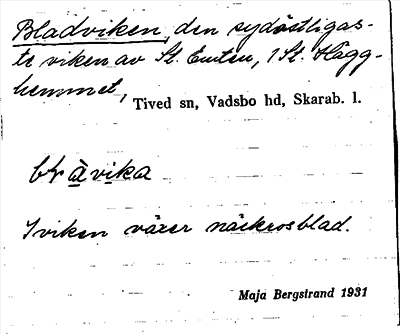 Bladviken, den sydöstligas-
te viken av St. Emten, 1 St. Hägg-
hemmet, Tived sn, Vadsbo hd, Skarab. l.
vika
I viken växer näckrosblad.
Maja Bergstrand 1931